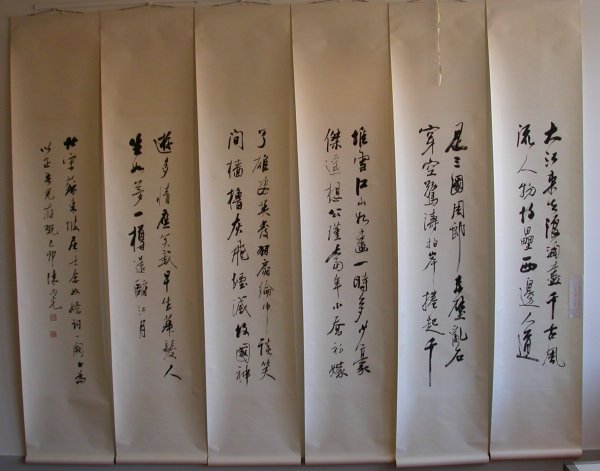 大江東去浪淘盡千古風
流人物故壘西邊人道
是三國周郎赤壁亂石
穿空驚濤拍岸捲起千
堆雪江山如畫一時多少豪
傑遙想公瑾當年小喬初嫁
了雄姿英發羽扇綸巾談笑
間檣櫓灰飛煙滅故國神
遊多情應笑我早生華髮人
生如夢一樽還酹江月
北宋蘇東坡居士念奴嬌詞一闋
以正吾兄存 己卯 陳